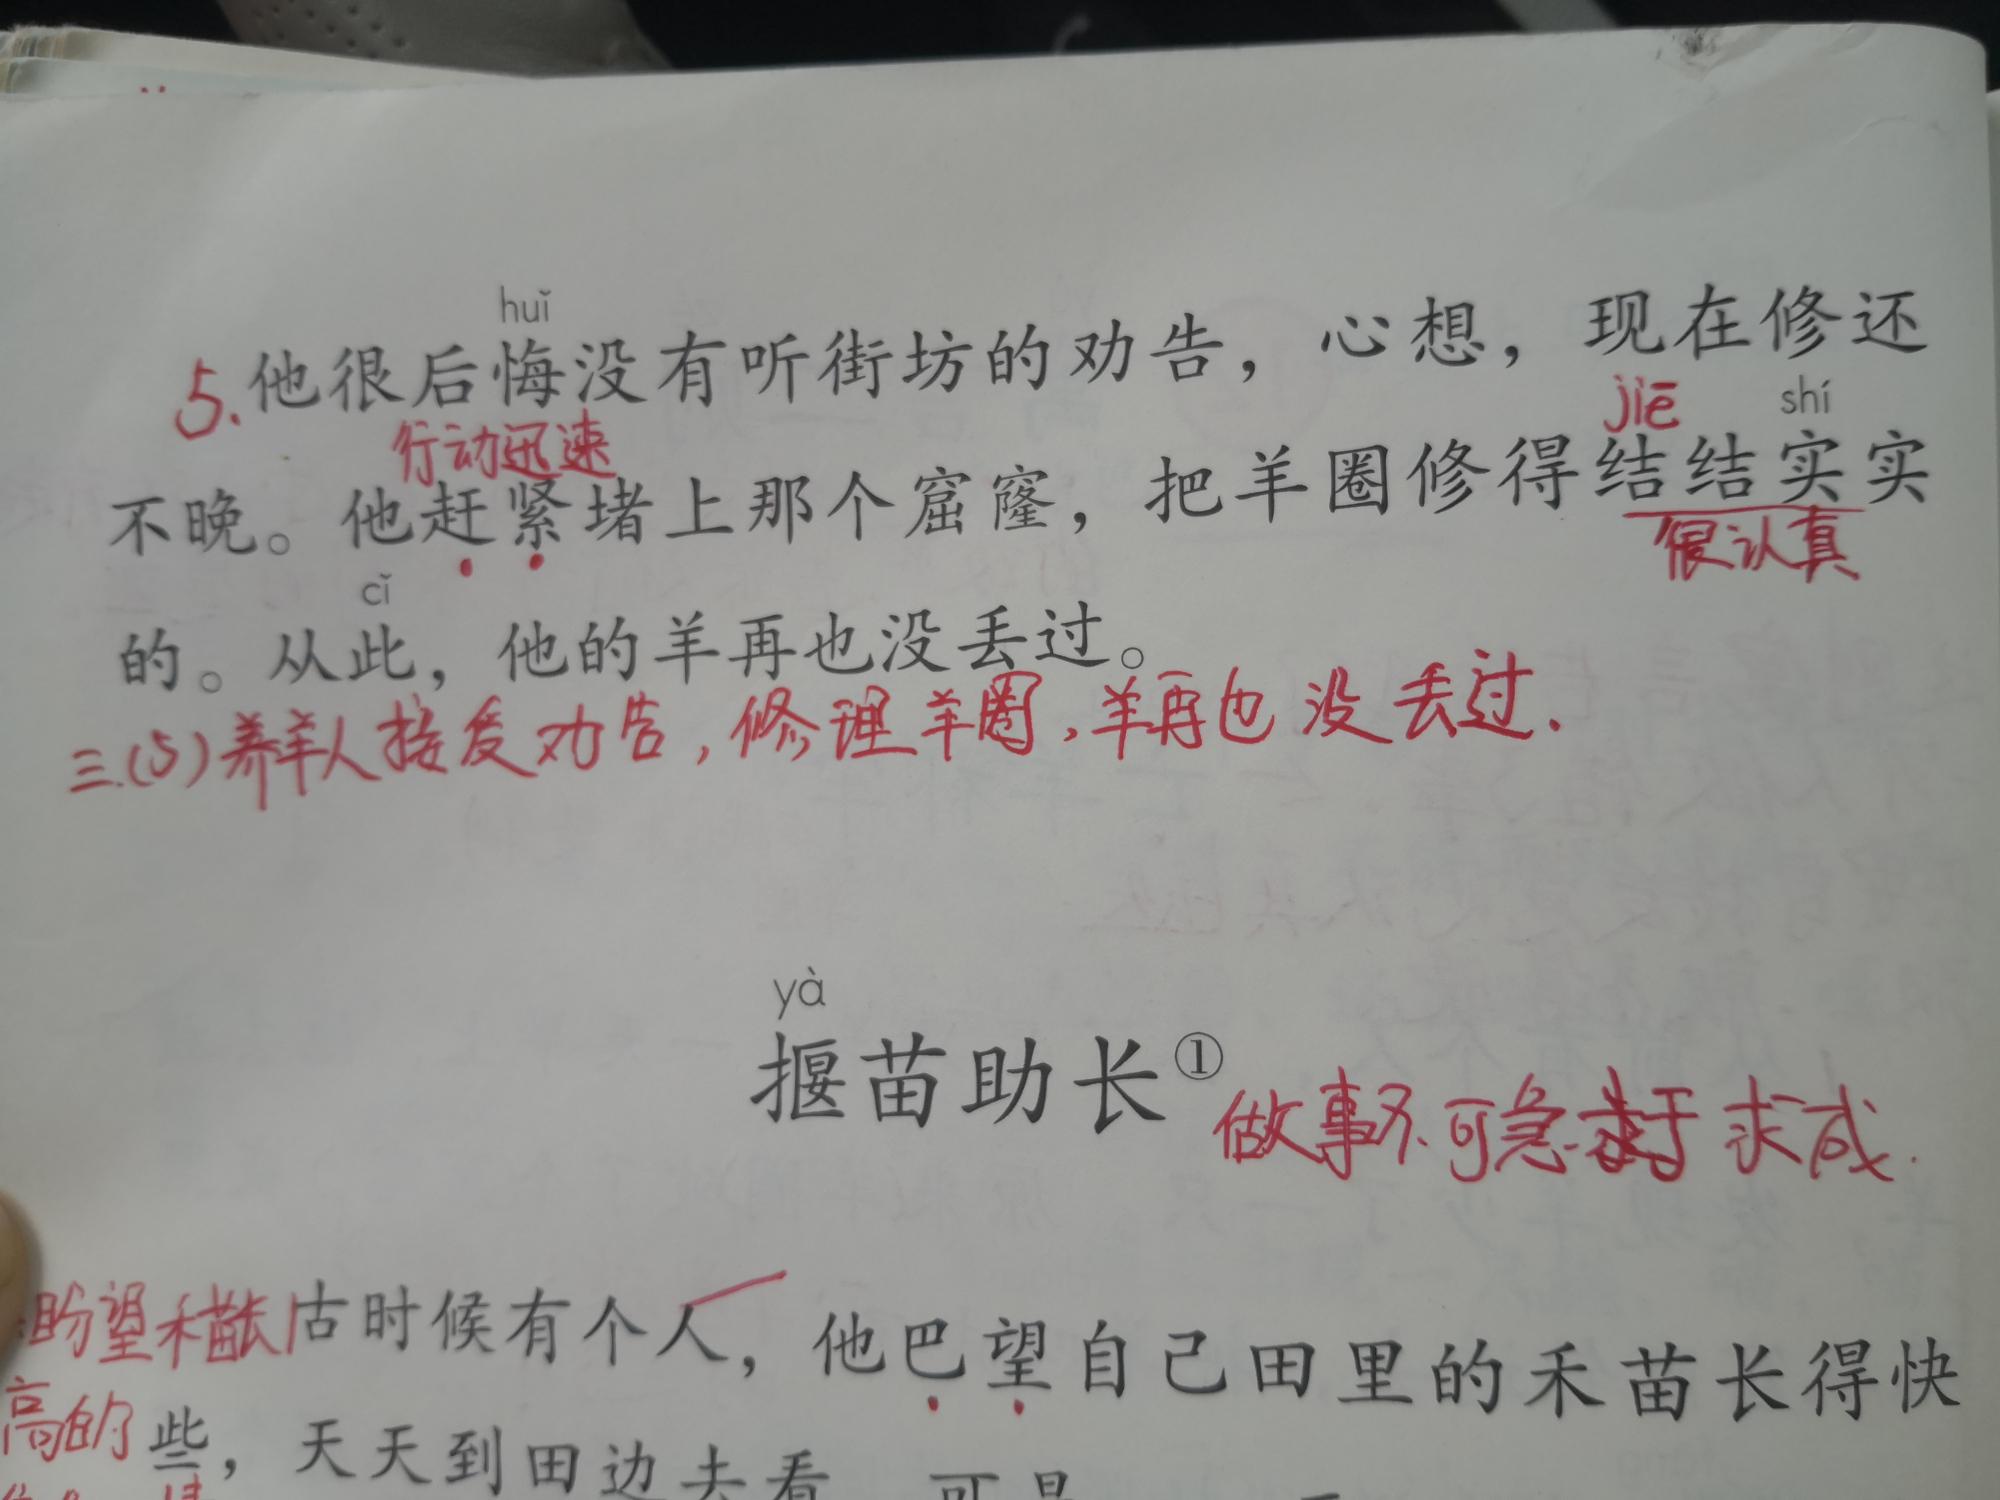 huǐ
5.他很后悔没有听街坊的劝告，心想，现在修还
行动迅速 jiē shí
不晚。他赶紧堵上那个窟窿，把羊圈修得结结实实
很认真
cǐ
的。从此，他的羊再也没丢过。
三.(5)养羊人接受劝告,修理羊圈,羊再也没丢过.
yà
揠苗助长①
做事不可急于求成.
盼望禾苗长 古时候有个人，他巴望自己田里的禾苗长得快
高的 些，天天到田边去看